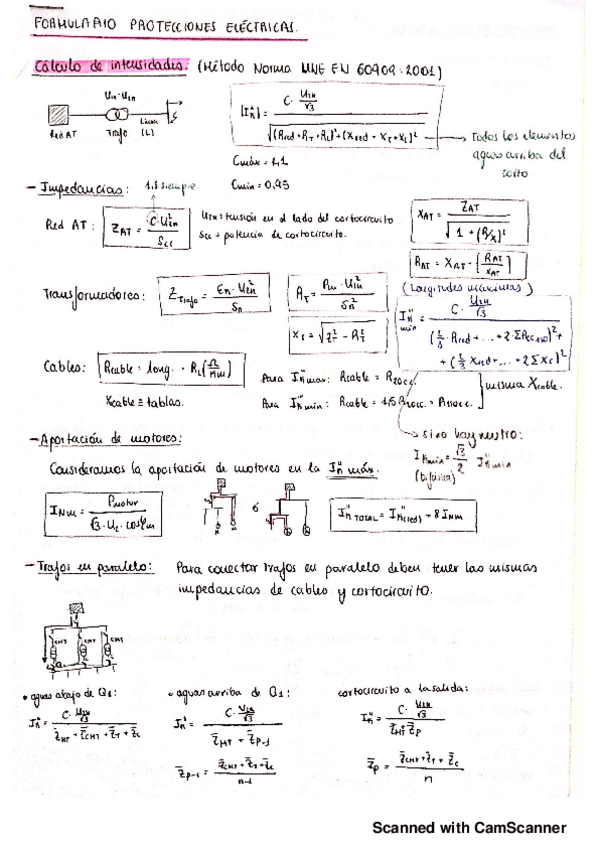 FORMULARIO PROTECCIONES ELÉCTRICAS.
Cálculo de intensidades. (Método Norma UNE EN 60909-2001)
U₁ₙ-U₂ₙ
Red AT Trafo Línea (L)
|Iₖ"| = C · U₂ₙ/√3 / √((Rred + R_T + R_L)² + (Xred + X_T + X_L)²) → Todos los elementos aguas arriba del corto
Cmáx = 1,1
Cmin = 0,95
- Impedancias: 1,1 siempre
Red AT: Z_AT = C · U₂ₙ² / Scc
U₂ₙ = tensión en el lado del cortocircuito
Scc = potencia de cortocircuito.
X_AT = Z_AT / √(1 + (R/X)²)
R_AT = X_AT · (R_AT / X_AT)
Transformadores: Z_Trafo = Ɛₙ · U₂ₙ² / Sₙ
R_T = · U₂ₙ² / Sₙ²
X_T = √(Z_T² - R_T²)
(Longitudes máximas)
Iₖ" min = C · U₂ₙ/√3 /
Cables: Rcable = long. · R_L (Ω/km)
Xcable = tablas.
Para Iₖ" max: Rcable = R20ºC.
Para Iₖ" min: Rcable = 1,5 R20ºC. =
misma Xcable.
→ si no hay neutro:
Iₖmin = √3/2 Iₖ" min
(bifásica)
- Aportación de motores:
Consideramos la aportación de motores en la Iₖ" máx.
I_NM = Pmotor / √3 · U_L · cosφm
ó
Iₖ" TOTAL = Iₖ"(red) + 8 I_NM
- Trafos en paralelo: Para conectar trafos en paralelo deben tener las mismas
impedancias de cables y cortocircuito.
CMT CMT CMT
• aguas abajo de Q1:
Iₖ" = C · U₂ₙ/√3 / Z̄_MT + Z̄_CMT + Z̄_T + Z̄_C
• aguas arriba de Q1:
Iₖ" = C · U₂ₙ/√3 / Z̄_MT + Z̄_P-1
Z̄_P-1 = Z̄_CMT + Z̄_T + Z̄_C / n-1
cortocircuito a la salida:
Iₖ" = C · U₂ₙ/√3 / Z̄_MT + Z̄_P
Z̄_P = Z̄_CMT + Z̄_T + Z̄_C / n
Scanned with CamScanner